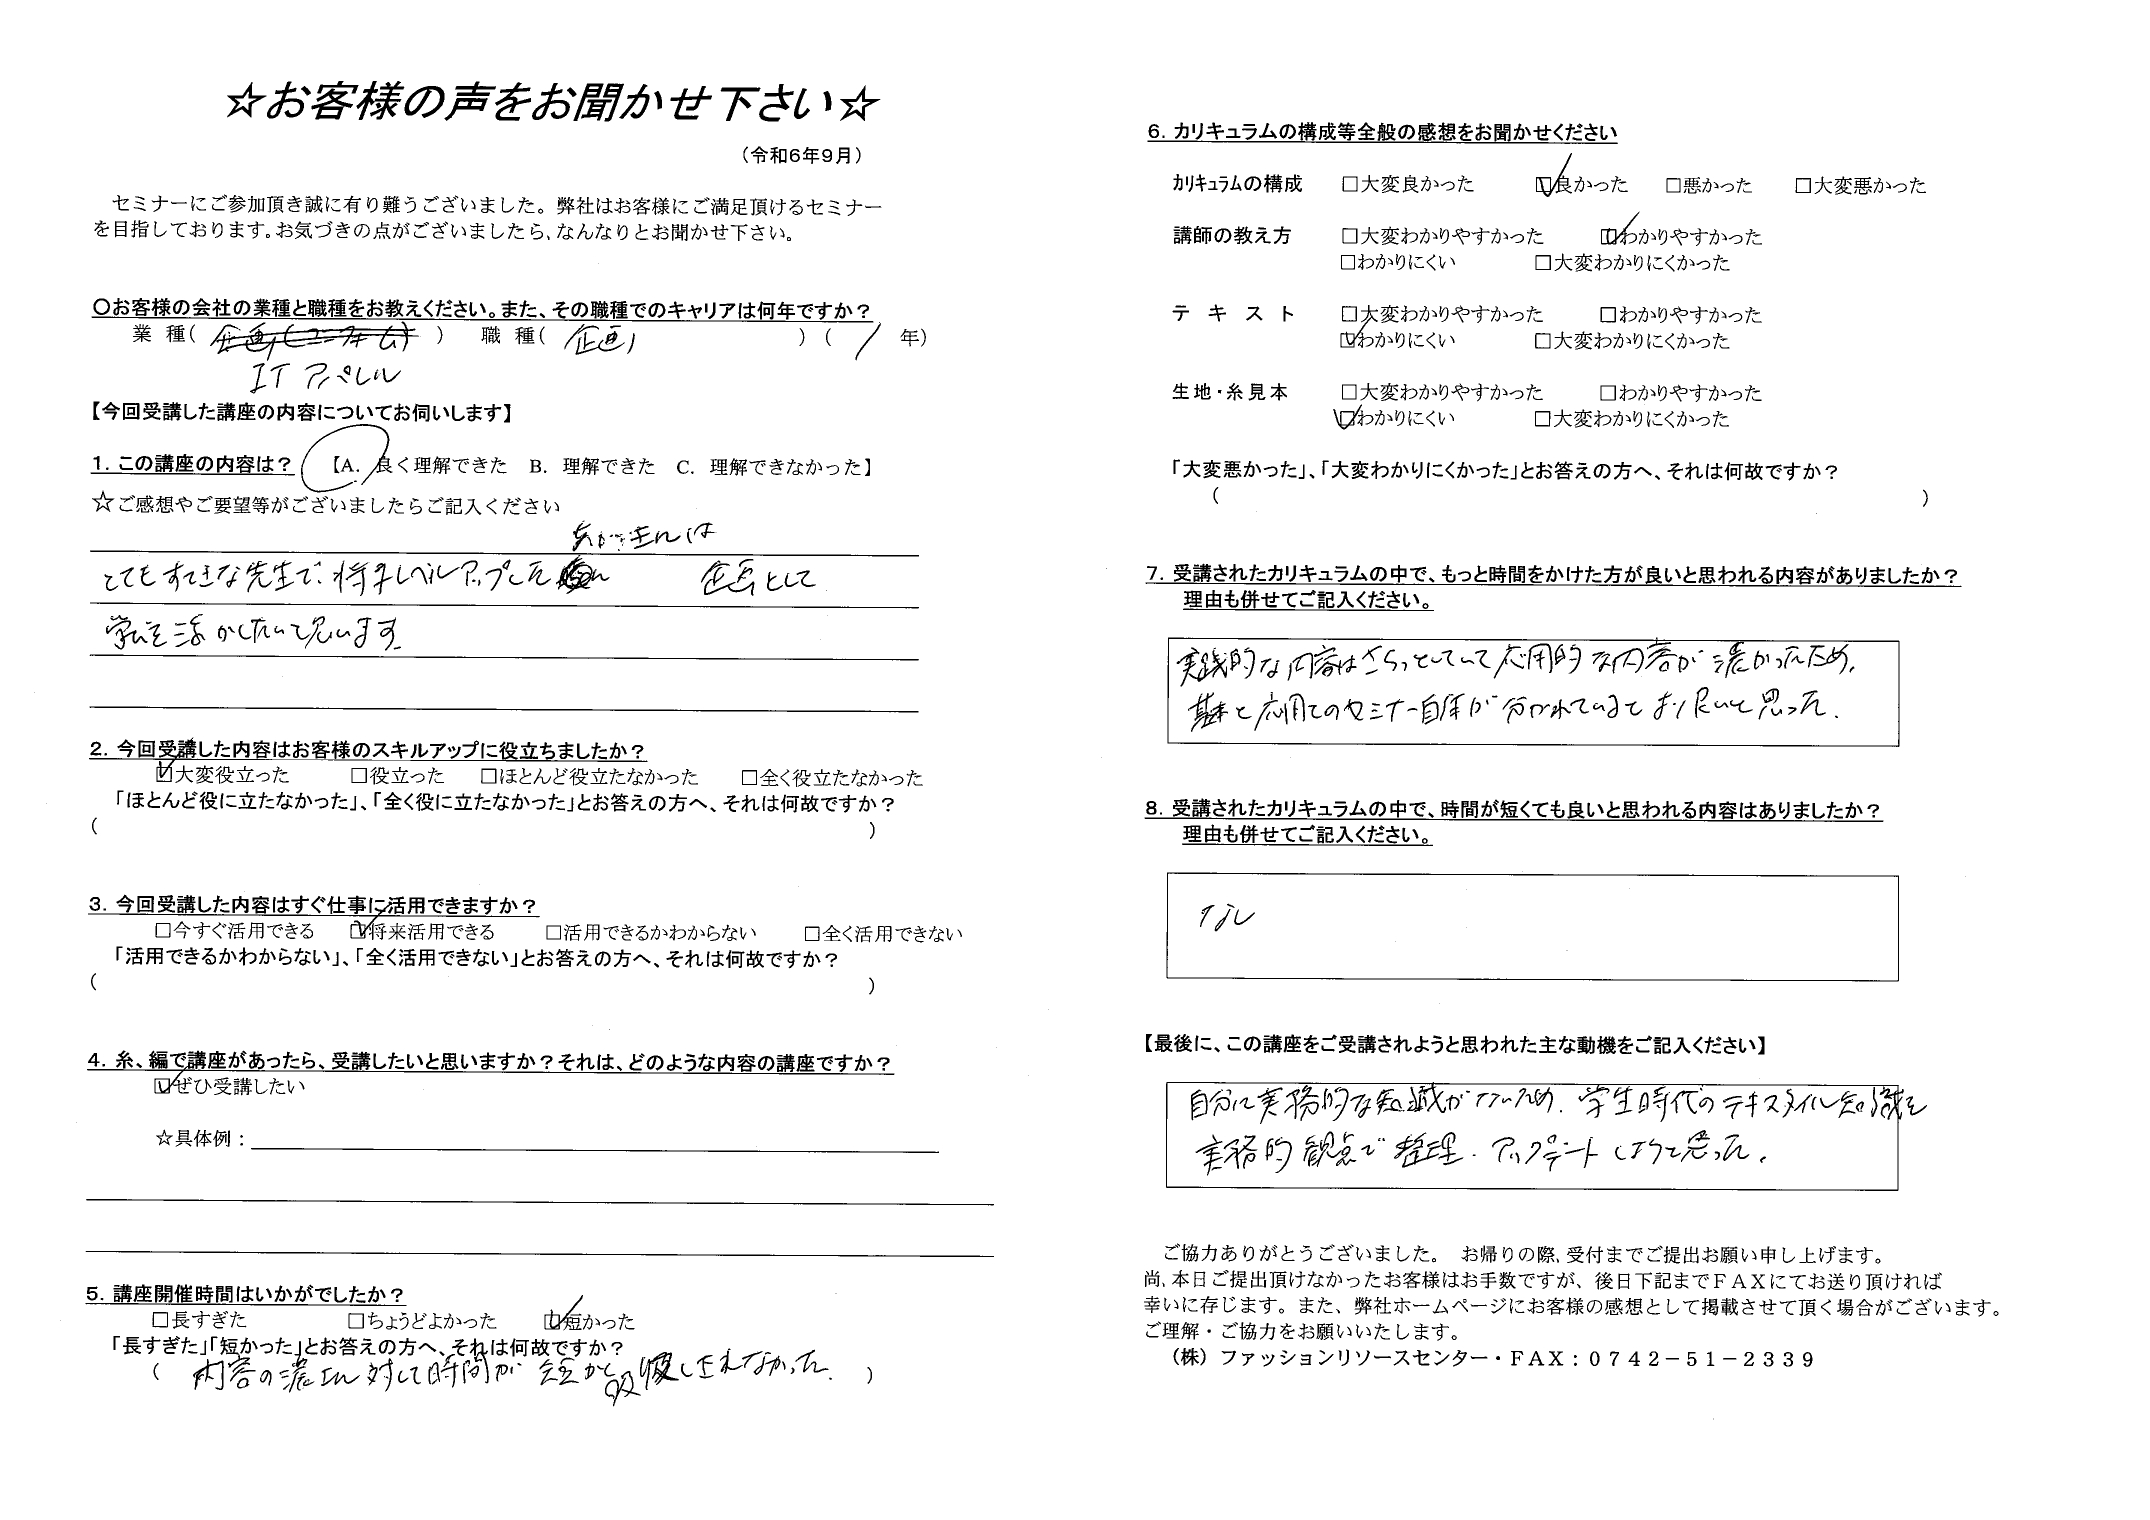 ☆お客様の声をお聞かせ下さい☆
（令和6年9月）
セミナーにご参加頂き誠に有り難うございました。弊社はお客様にご満足頂けるセミナー
を目指しております。お気づきの点がございましたら、なんなりとお聞かせ下さい。
〇お客様の会社の業種と職種をお教えください。また、その職種でのキャリアは何年ですか？
業 種（ 企画(ユニフォーム) ） 職 種（ 企画 ）（ 1 年）
IT アパレル
【今回受講した講座の内容についてお伺いします】
1. この講座の内容は？ 【A. 良く理解できた B. 理解できた C. 理解できなかった】
☆ご感想やご要望等がございましたらご記入ください
とてもすてきな先生で、将来レベルアップした 企画として
学びを活かしたいと思います
2. 今回受講した内容はお客様のスキルアップに役立ちましたか？
☑大変役立った □役立った □ほとんど役立たなかった □全く役立たなかった
「ほとんど役に立たなかった」、「全く役に立たなかった」とお答えの方へ、それは何故ですか？
（ ）
3. 今回受講した内容はすぐ仕事に活用できますか？
□今すぐ活用できる ☑将来活用できる □活用できるかわからない □全く活用できない
「活用できるかわからない」、「全く活用できない」とお答えの方へ、それは何故ですか？
（ ）
4. 糸、編で講座があったら、受講したいと思いますか？それは、どのような内容の講座ですか？
☑ぜひ受講したい
☆具体例：
5. 講座開催時間はいかがでしたか？
□長すぎた □ちょうどよかった ☑短かった
「長すぎた」「短かった」とお答えの方へ、それは何故ですか？
（ 内容の濃さに対して時間が短かく吸収しきれなかった。 ）
6. カリキュラムの構成等全般の感想をお聞かせください
カリキュラムの構成 □大変良かった ☑良かった □悪かった □大変悪かった
講師の教え方 □大変わかりやすかった ☑わかりやすかった
□わかりにくい □大変わかりにくかった
テ キ ス ト □大変わかりやすかった □わかりやすかった
☑わかりにくい □大変わかりにくかった
生地・糸見本 □大変わかりやすかった □わかりやすかった
☑わかりにくい □大変わかりにくかった
「大変悪かった」、「大変わかりにくかった」とお答えの方へ、それは何故ですか？
（ ）
7. 受講されたカリキュラムの中で、もっと時間をかけた方が良いと思われる内容がありましたか？
理由も併せてご記入ください。
実践的な内容はさらっとしていて応用的な内容が濃かったため、
基本と応用でのセミナー自体が分かれているとより良いと思った。
8. 受講されたカリキュラムの中で、時間が短くても良いと思われる内容はありましたか？
理由も併せてご記入ください。
なし
【最後に、この講座をご受講されようと思われた主な動機をご記入ください】
自分に実務的な知識がないため、学生時代のテキスタイル知識を
実務的観点で整理・アップデートしようと思った。
ご協力ありがとうございました。 お帰りの際、受付までご提出お願い申し上げます。
尚、本日ご提出頂けなかったお客様はお手数ですが、後日下記までＦＡＸにてお送り頂ければ
幸いに存じます。また、弊社ホームページにお客様の感想として掲載させて頂く場合がございます。
ご理解・ご協力をお願いいたします。
（株）ファッションリソースセンター・ＦＡＸ：０７４２－５１－２３３９